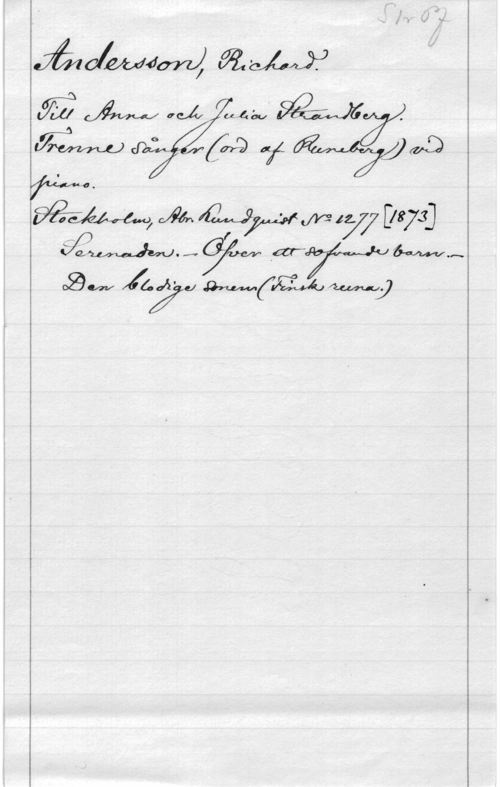 Str 67
Andersson, Richard.
Till Anna och Julia Strandberg.
Trenne sånger (ord af Runeberg) vid
piano.
Stockholm, Abr. Lundquist Nº 1277 [1873]
Serenaden. – Öfver ett sofvande barn. –
Den blodige sonen (Finsk runa.)